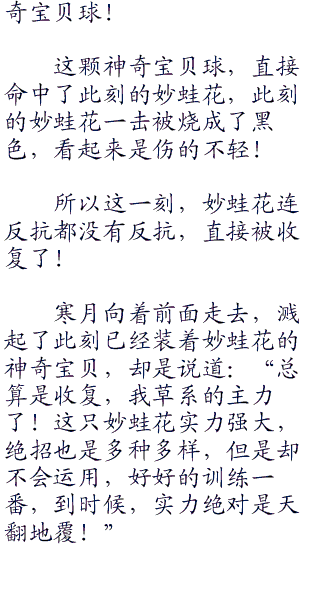 奇宝贝球！
这颗神奇宝贝球，直接
命中了此刻的妙蛙花，此刻
的妙蛙花一击被烧成了黑
色，看起来是伤的不轻！
所以这一刻，妙蛙花连
反抗都没有反抗，直接被收
复了！
寒月向着前面走去，溅
起了此刻已经装着妙蛙花的
神奇宝贝，却是说道：“总
算是收复，我草系的主力
了！这只妙蛙花实力强大，
绝招也是多种多样，但是却
不会运用，好好的训练一
番，到时候，实力绝对是天
翻地覆！”